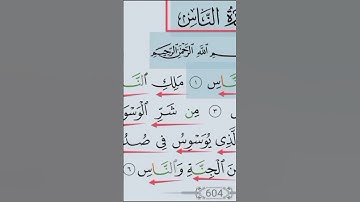 رَةُ النَّاسِ
مِ اللَّهِ الرَّحْمَٰنِ الرَّحِيمِ
اسِ ١ مَلِكِ النَّ
٣ مِن شَرِّ الْوَسْوَ
لَّذِي يُوَسْوِسُ فِي صُدُ
نَ الْجِنَّةِ وَالنَّاسِ ٦
604